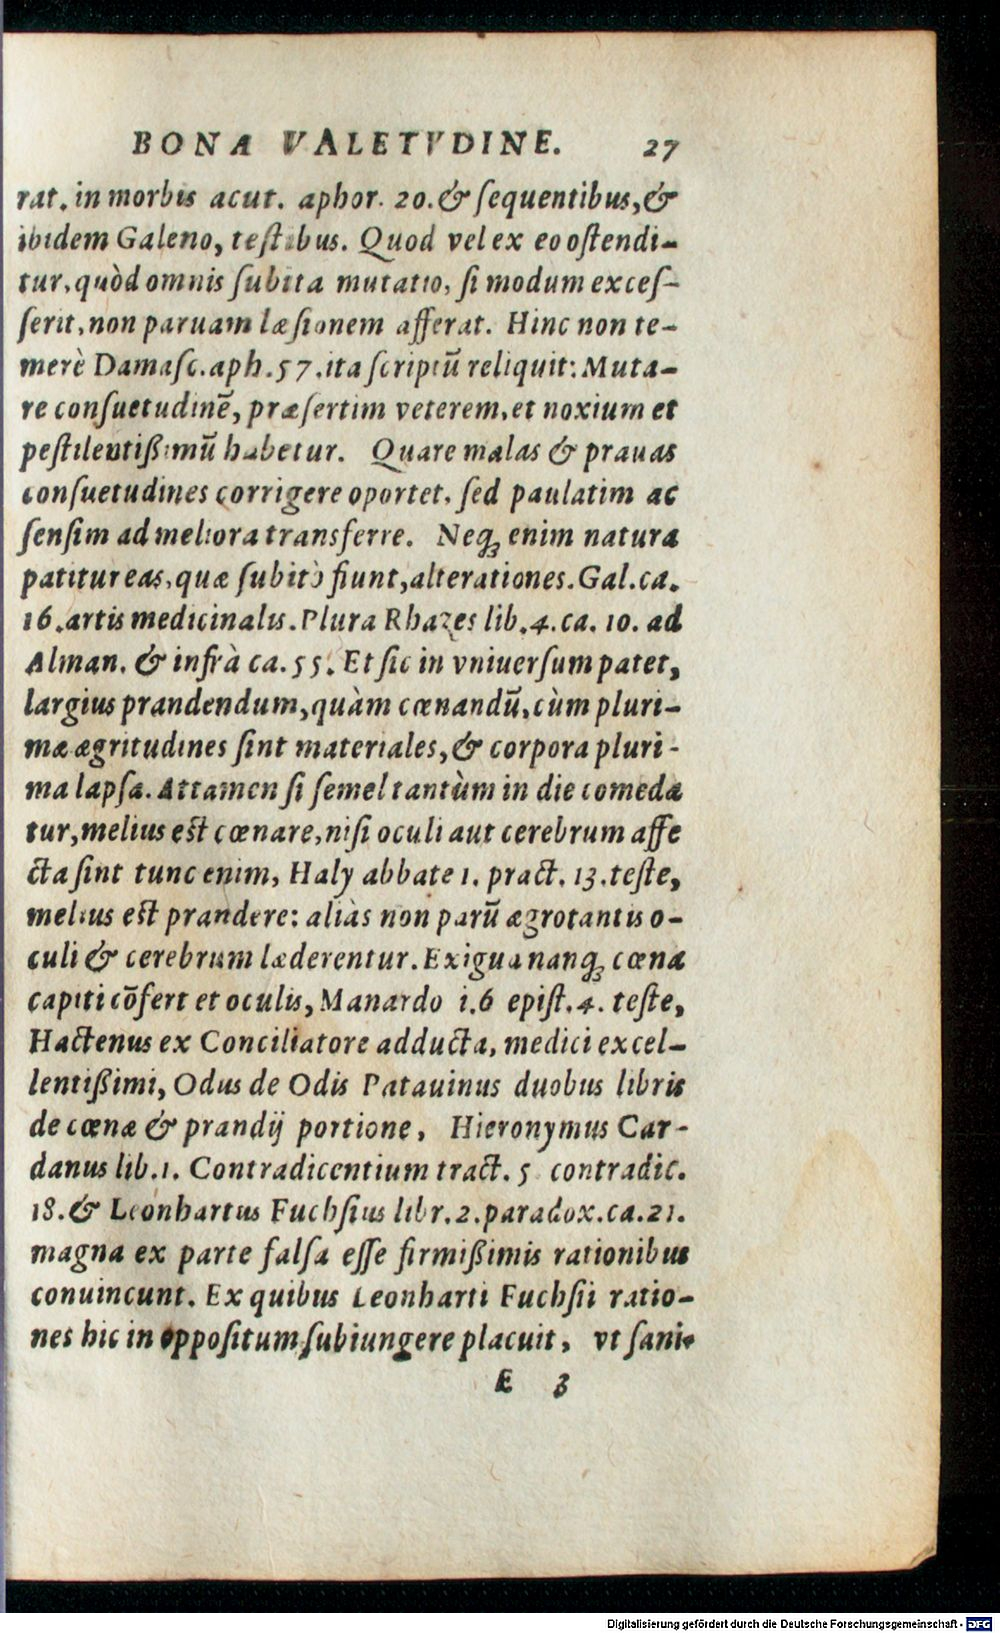 BONA VALETVDINE. 27
rat. in morbis acut. aphor. 20. & ſequentibus, &
ibidem Galeno, teſtibus. Quod vel ex eo oſtendi-
tur, quòd omnis ſubita mutatio, ſi modum exceſ-
ſerit, non paruam læſionem afferat. Hinc non te-
merè Damaſc. aph. 57. ita ſcriptū reliquit: Muta-
re conſuetudinē, præſertim veterem, et noxium et
peſtilentißimū habetur. Quare malas & prauas
conſuetudines corrigere oportet, ſed paulatim ac
ſenſim ad meliora transferre. Neqꝫ enim natura
patitur eas, quæ ſubitò fiunt, alterationes. Gal. ca.
16. artis medicinalis. Plura Rhazes lib. 4. ca. 10. ad
Alman. & infrà ca. 55. Et ſic in vniuerſum patet,
largius prandendum, quàm cœnandū, cùm pluri-
mæ ægritudines ſint materiales, & corpora pluri-
ma lapſa. Attamen ſi ſemel tantùm in die comeda
tur, melius eſt cœnare, niſi oculi aut cerebrum affe
cta ſint tunc enim, Haly abbate 1. pract. 13. teſte,
melius eſt prandere: aliàs non parū ægrotantis o-
culi & cerebrum læderentur. Exigua nanqꝫ cœna
capiti cōfert et oculis, Manardo i. 6 epiſt. 4. teſte,
Hactenus ex Conciliatore adducta, medici excel-
lentißimi, Odus de Odis Patauinus duobus libris
de cœnæ & prandij portione, Hieronymus Car-
danus lib. 1. Contradicentium tract. 5 contradic.
18. & Leonhartus Fuchſius libr. 2. paradox. ca. 21.
magna ex parte falſa eſſe firmißimis rationibus
conuincunt. Ex quibus Leonharti Fuchſii ratio-
nes hic in oppoſitum ſubiungere placuit, vt ſani-
E 3
Digitalisierung gefördert durch die Deutsche Forschungsgemeinschaft - DFG